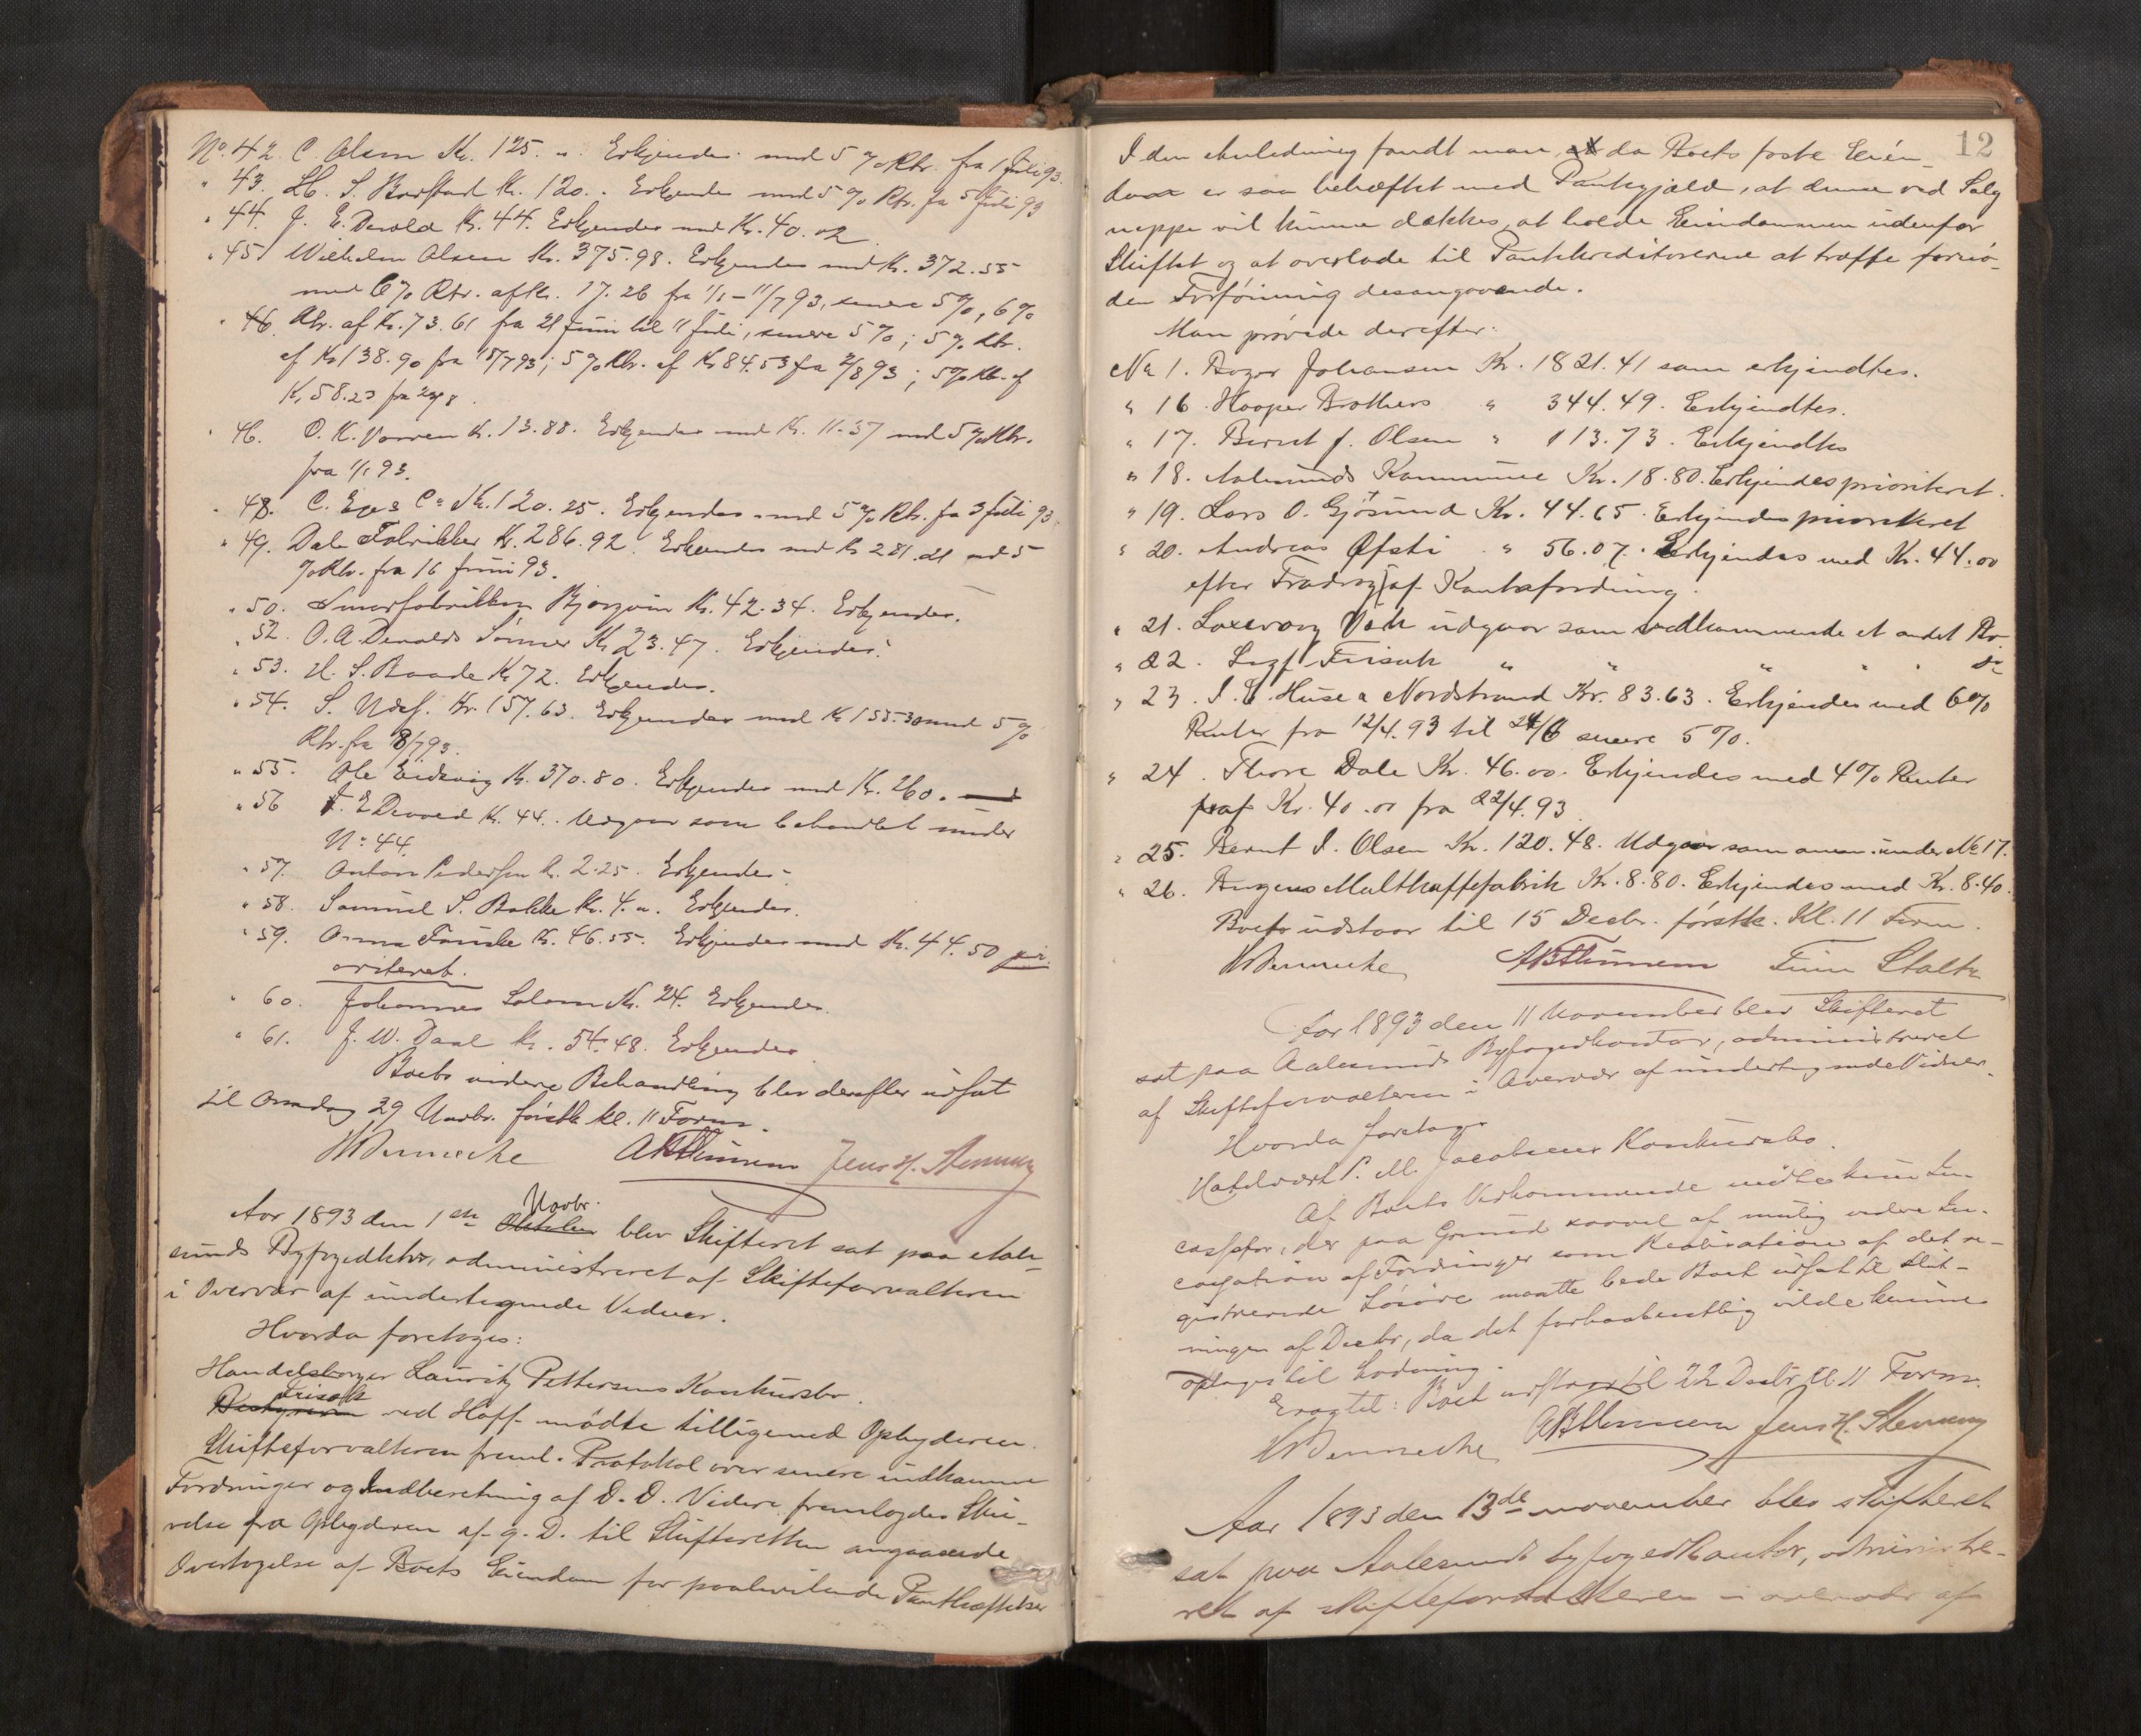 No. 42. C. Olsen Kr. 125. " . Erkjendes med 5 % Rtr. fra 1 Juli 93.
" 43. S. Kr. 120. " Erkjendes med 5 % Rtr. fra 5 Juli 93
" 44. J. E. Devold Kr. 44. Erkjendes med Kr. 40.02
" 45. Wilhelm Olsen Kr. 375.98. Erkjendes med Kr. 372.55
med 6 % Rtr. af Kr. 17.26 fra 1/1 – 11/7 93, senere 5 %, 6 %
" 46. Rtr. af Kr. 73.61 fra 21 Juni til 11 Juli, senere 5 %; 5 % Rtr.
af Kr 138.90 fra 15/7 93; 5 % Rtr. af Kr 84.53 fra 2/8 93; 5 % Rtr. af
Kr. 58.23 fra
" 46. O. K. Kr. 13.88. Erkjendes med Kr. 11.37 med 5 % Rtr.
fra 1/1 93.
" 48. C. Ege & Co Kr. 120.25. Erkjendes med 5 % Rtr. fra 3 Juli 93.
" 49. Dale Fabrikker Kr. 286.92. Erkjendes med Kr 281.21 med 5
% Rtr. fra 16 Juni 93.
" 50. Smørfabrikken Bjørgvin Kr. 42.34. Erkjendes.
" 52. O. A. Devolds Sønner Kr 23.47. Erkjendes.
" 53. H. S. Baade Kr 72. Erkjendes.
" 54. S. Kr. 157.63. Erkjendes med Kr 155.30 med 5 %
Rtr. fra 8/7 93.
" 55. Ole Eidsvig Kr. 370.80. Erkjendes med Kr. 260.
" 56 J. E Devold Kr. 44. Udgaar som behandlet under
No. 44.
" 57. Anton Pedersen Kr. 2.25. Erkjendes.
" 58. Samuel S. Bakke Kr. 4. " . Erkjendes.
" 59. Anna Kr. 46.55. Erkjendes med Kr. 44.50 pri-
oriteret.
" 60. Johannes Kr. 24. Erkjendes.
" 61. J. W. Daae Kr. 54.48. Erkjendes.
Boets videre Behandling blev derefter udsat
til Onsdag 29 Novbr. førstk kl. 11 Form.
Jens H. Stenning
Novbr.
Aar 1893 den 1ste Oktober blev Skifteret sat paa Aale-
sunds Byfogedktr, administreret af Skifteforvalteren
i Overvær af undertegnede Vidner.
Hvorda foretoges:
Handelsborger Lauritz Pettersens Konkursbo.
Frisak
Bestyreren ved Hoff mødte tilligemed Opbyderen.
Skifteforvalteren freml. Protokol over senere indkomne
Fordringer og Indberetning af D. D. Videre fremlagdes Skri-
velse fra Opbyderen af g. D. til Skifteretten angaaende
Overtagelse af Boets Eiendom for paahvilende Pantheftelser
12
I den Anledning fandt man at da Boets faste Eien-
dom er saa beheftet med Pantegjæld, at denne ved Salg
neppe vil kunne dækkes, at holde Eiendommen udenfor
Skiftet og at overlade til Pantekreditorerne at træffe fornø-
den Forføining desangaaende.
Man prøvede derefter:
No 1. Johansen Kr. 1821.41 som erkjendtes.
" 16. Hooper Brothers " 344.49. Erkjendtes.
" 17. Bernt J. Olsen " 113.73. Erkjendtes
" 18. Aalesunds Kommune Kr. 18.80. Erkjendes prioriteret.
" 19. Lars O. Gjøsund Kr. 44.65. Erkjendes prioriteret
" 20. Andreas Øfsti " 56.07. Erkjendes med Kr. 44.00
efter Fradrag af Kontrafordring.
" 21. Laxevaag Værk udgaar som vedkommende et andet Bo
" 22. Frisak " " " " " do
" 23. I. E. Huse a Nordstrand Kr. 83.63. Erkjendes med 6 %
Renter fra 12/4.93 til 24/6 senere 5 %.
" 24. Thore Dale Kr. 46.00. Erkjendes med 4 % Renter
af Kr. 40.00 fra 22/4.93
" 25. Bernt I. Olsen Kr. 120.48. Udgaar som anm. under No 17.
" 26. Malthaffefabrik Kr. 8.80. Erkjendes med Kr. 8.40.
Boet udstaar til 15 Decbr. førstk. Kl. 11 Form.
Aar 1893 den 11 November blev Skifteret
sat paa Aalesunds Byfogedkontor, administreret
af Skifteforvalteren i Overvær af undertegnede Vidner.
Hvorda foretoges
P. M. Jacobsens Konkursbo.
Af Boets Vedkommende mødte kun In-
cassator, der paa Grund saavel af mulig videre In-
cassation af Fordringer som Realisation af det re-
gistrerede Løsøre maatte bede Boet udsat til Slut-
ningen af Decbr, da det forhaabentlig vilde kunne
optages til Lodning.
Eragtet: Boet udstaar til 22 Decbr. kl. 11 Form.
Jens H. Stenning
Aar 1893 den 13de november blev skifteret
sat paa Aalesunds byfogedkontor, administre-
ret af skifteforvalteren i overvær af